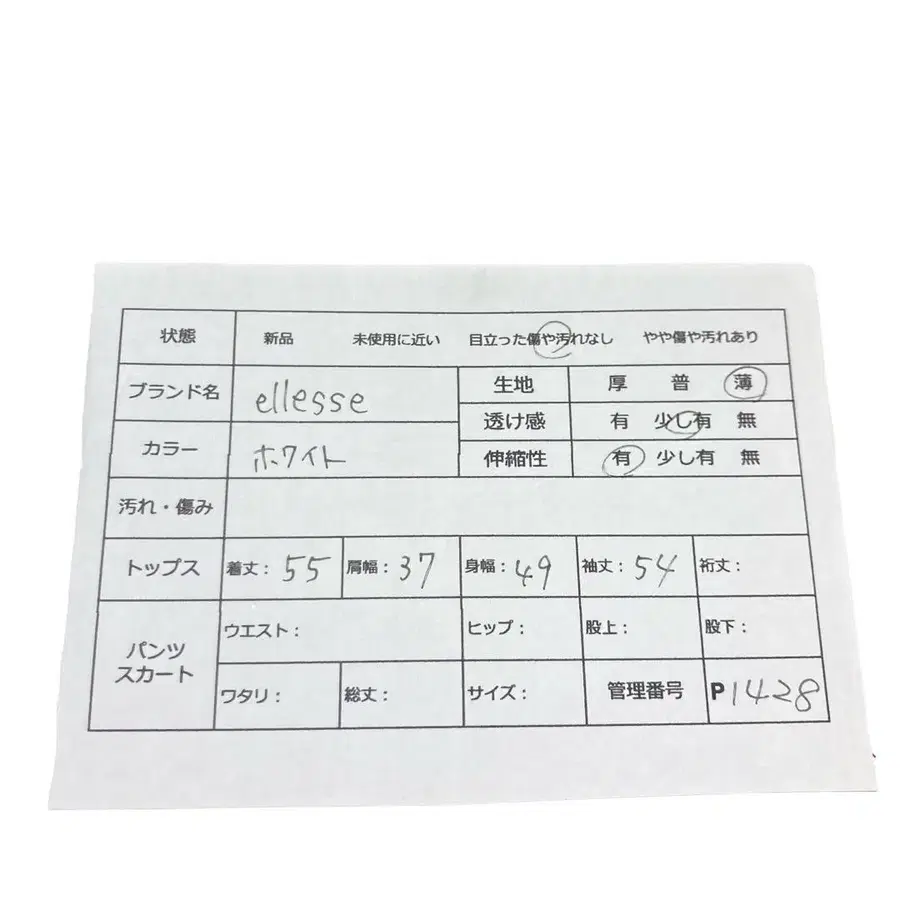 状態 新品 未使用に近い 目立った傷や汚れなし やや傷や汚れあり
ブランド名 ellesse 生地 厚 普 薄
透け感 有 少し有 無
カラー ホワイト 伸縮性 有 少し有 無
汚れ・傷み
トップス 着丈: 55 肩幅: 37 身幅: 49 袖丈: 54 裄丈:
パンツ スカート ウエスト: ヒップ: 股上: 股下:
ワタリ: 総丈: サイズ: 管理番号 P1428